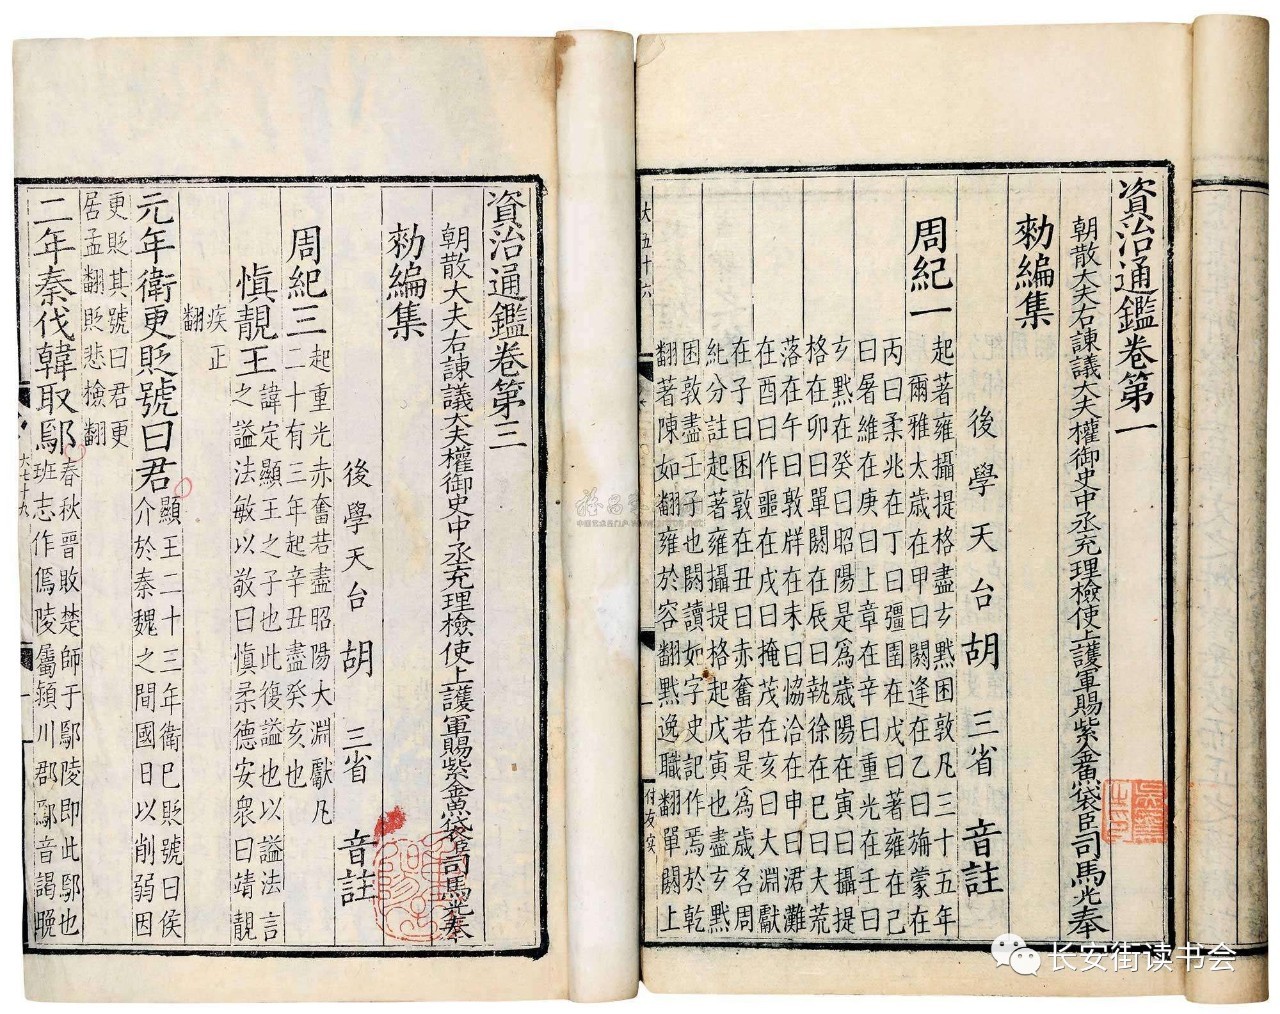 資治通鑑卷第一
朝散大夫右諫議大夫權御史中丞充理檢使上護軍賜紫金魚袋臣司馬光奉
勑編集
後學天台胡三省音註
周紀一
起著雍攝提格盡玄黓困敦凡三十五年
爾雅太歲在甲曰閼逢在乙曰旃蒙在
丙曰柔兆在丁曰彊圉在戊曰著雍在己
曰屠維在庚曰上章在辛曰重光在壬曰
玄黓在癸曰昭陽是爲歲陽在寅曰攝提
格在卯曰單閼在辰曰執徐在巳曰大荒
落在午曰敦牂在未曰協洽在申曰涒灘
在酉曰作噩在戌曰掩茂在亥曰大淵獻
在子曰困敦在丑曰赤奮若是爲歲名周
紀分註起著雍攝提格起戊寅也盡玄黓
困敦盡壬子也閼讀如字史記作焉於乾
翻著陳如翻雍於容翻黓逸職翻單閼上
大五十六
付友實
資治通鑑卷第三
朝散大夫右諫議大夫權御史中丞充理檢使上護軍賜紫金魚袋臣司馬光奉
勑編集
後學天台胡三省音註
周紀三
起重光赤奮若盡昭陽大淵獻凡
二十有三年起辛丑盡癸亥也
愼靚王
諱定顯王之子也此復謚也以謚法言
之謚法敏以敬曰愼柔德安衆曰靖靚
疾正
翻
元年衛更貶號曰君
顯王二十三年衛已貶號曰侯
介於秦魏之間國日以削弱因
更貶其號曰君更
居孟翻貶悲檢翻
二年秦伐韓取鄢
春秋晉敗楚師于鄢陵即此鄢也
班志作傿陵屬潁川郡鄢音謁晚
长安街读书会